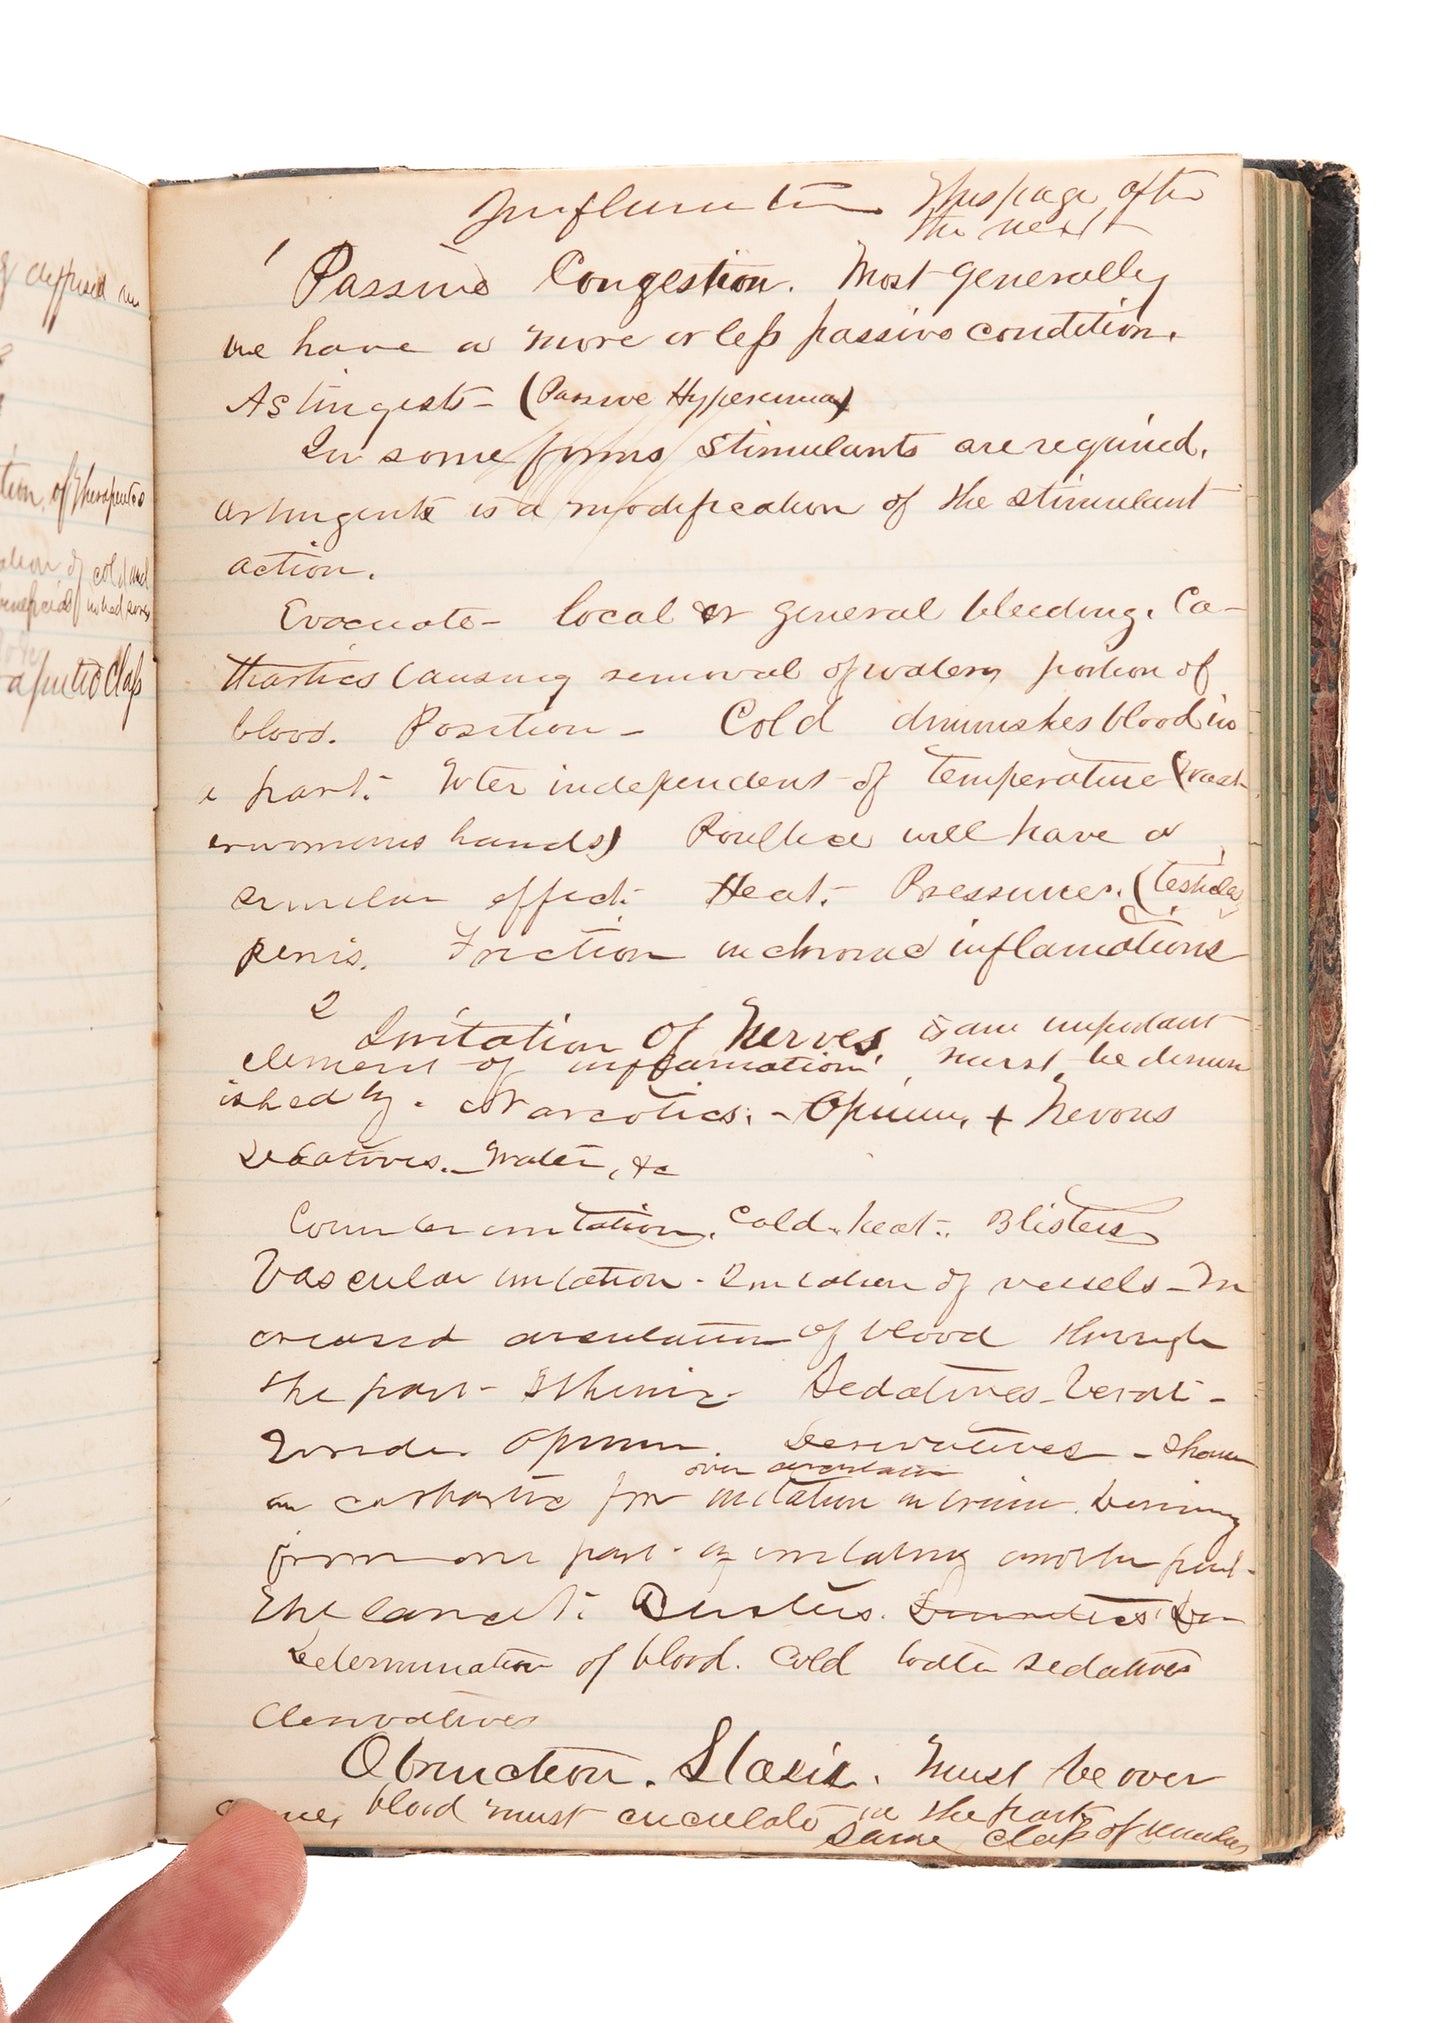 of Therapeutes
cold and
Class
This page after
the next
1
Passive Congestion. Most generally
we have a more or less passive condition.
Astingests - (Passive Hyperemia)
In some forms stimulants are required.
astringents is a modification of the stimulant
action.
Evacuate - local or general bleeding. Ca-
thartics causing removal of watery portion of
blood. Position - Cold diminishes blood in
a part. independent of temperature (wash
womans hands) Poultice will have a
similar effect. Heat. Pressure. (testicles
penis. Friction in chronic inflamations
2
Irritation of Nerves, is an important
element of inflamation, must be dimin
ished by. Narcotics. - Opium, + Nervous
Sedatives. - Water, &c
Counter irritation. Cold. heat. Blisters
Vascular irritation. Irritation of vessels - In
creased circulation of blood through
the part - Sthenic - Sedatives - Verati-
Opium. Derivatives -
over circulation
cathartic for irritation in brain. Deriving
from one part by irritating another part -
The lancet.
Determination of blood. Cold water sedatives
derivatives
Obstruction. Stasis. Must be over
come, blood must circulate in the part,
same class of